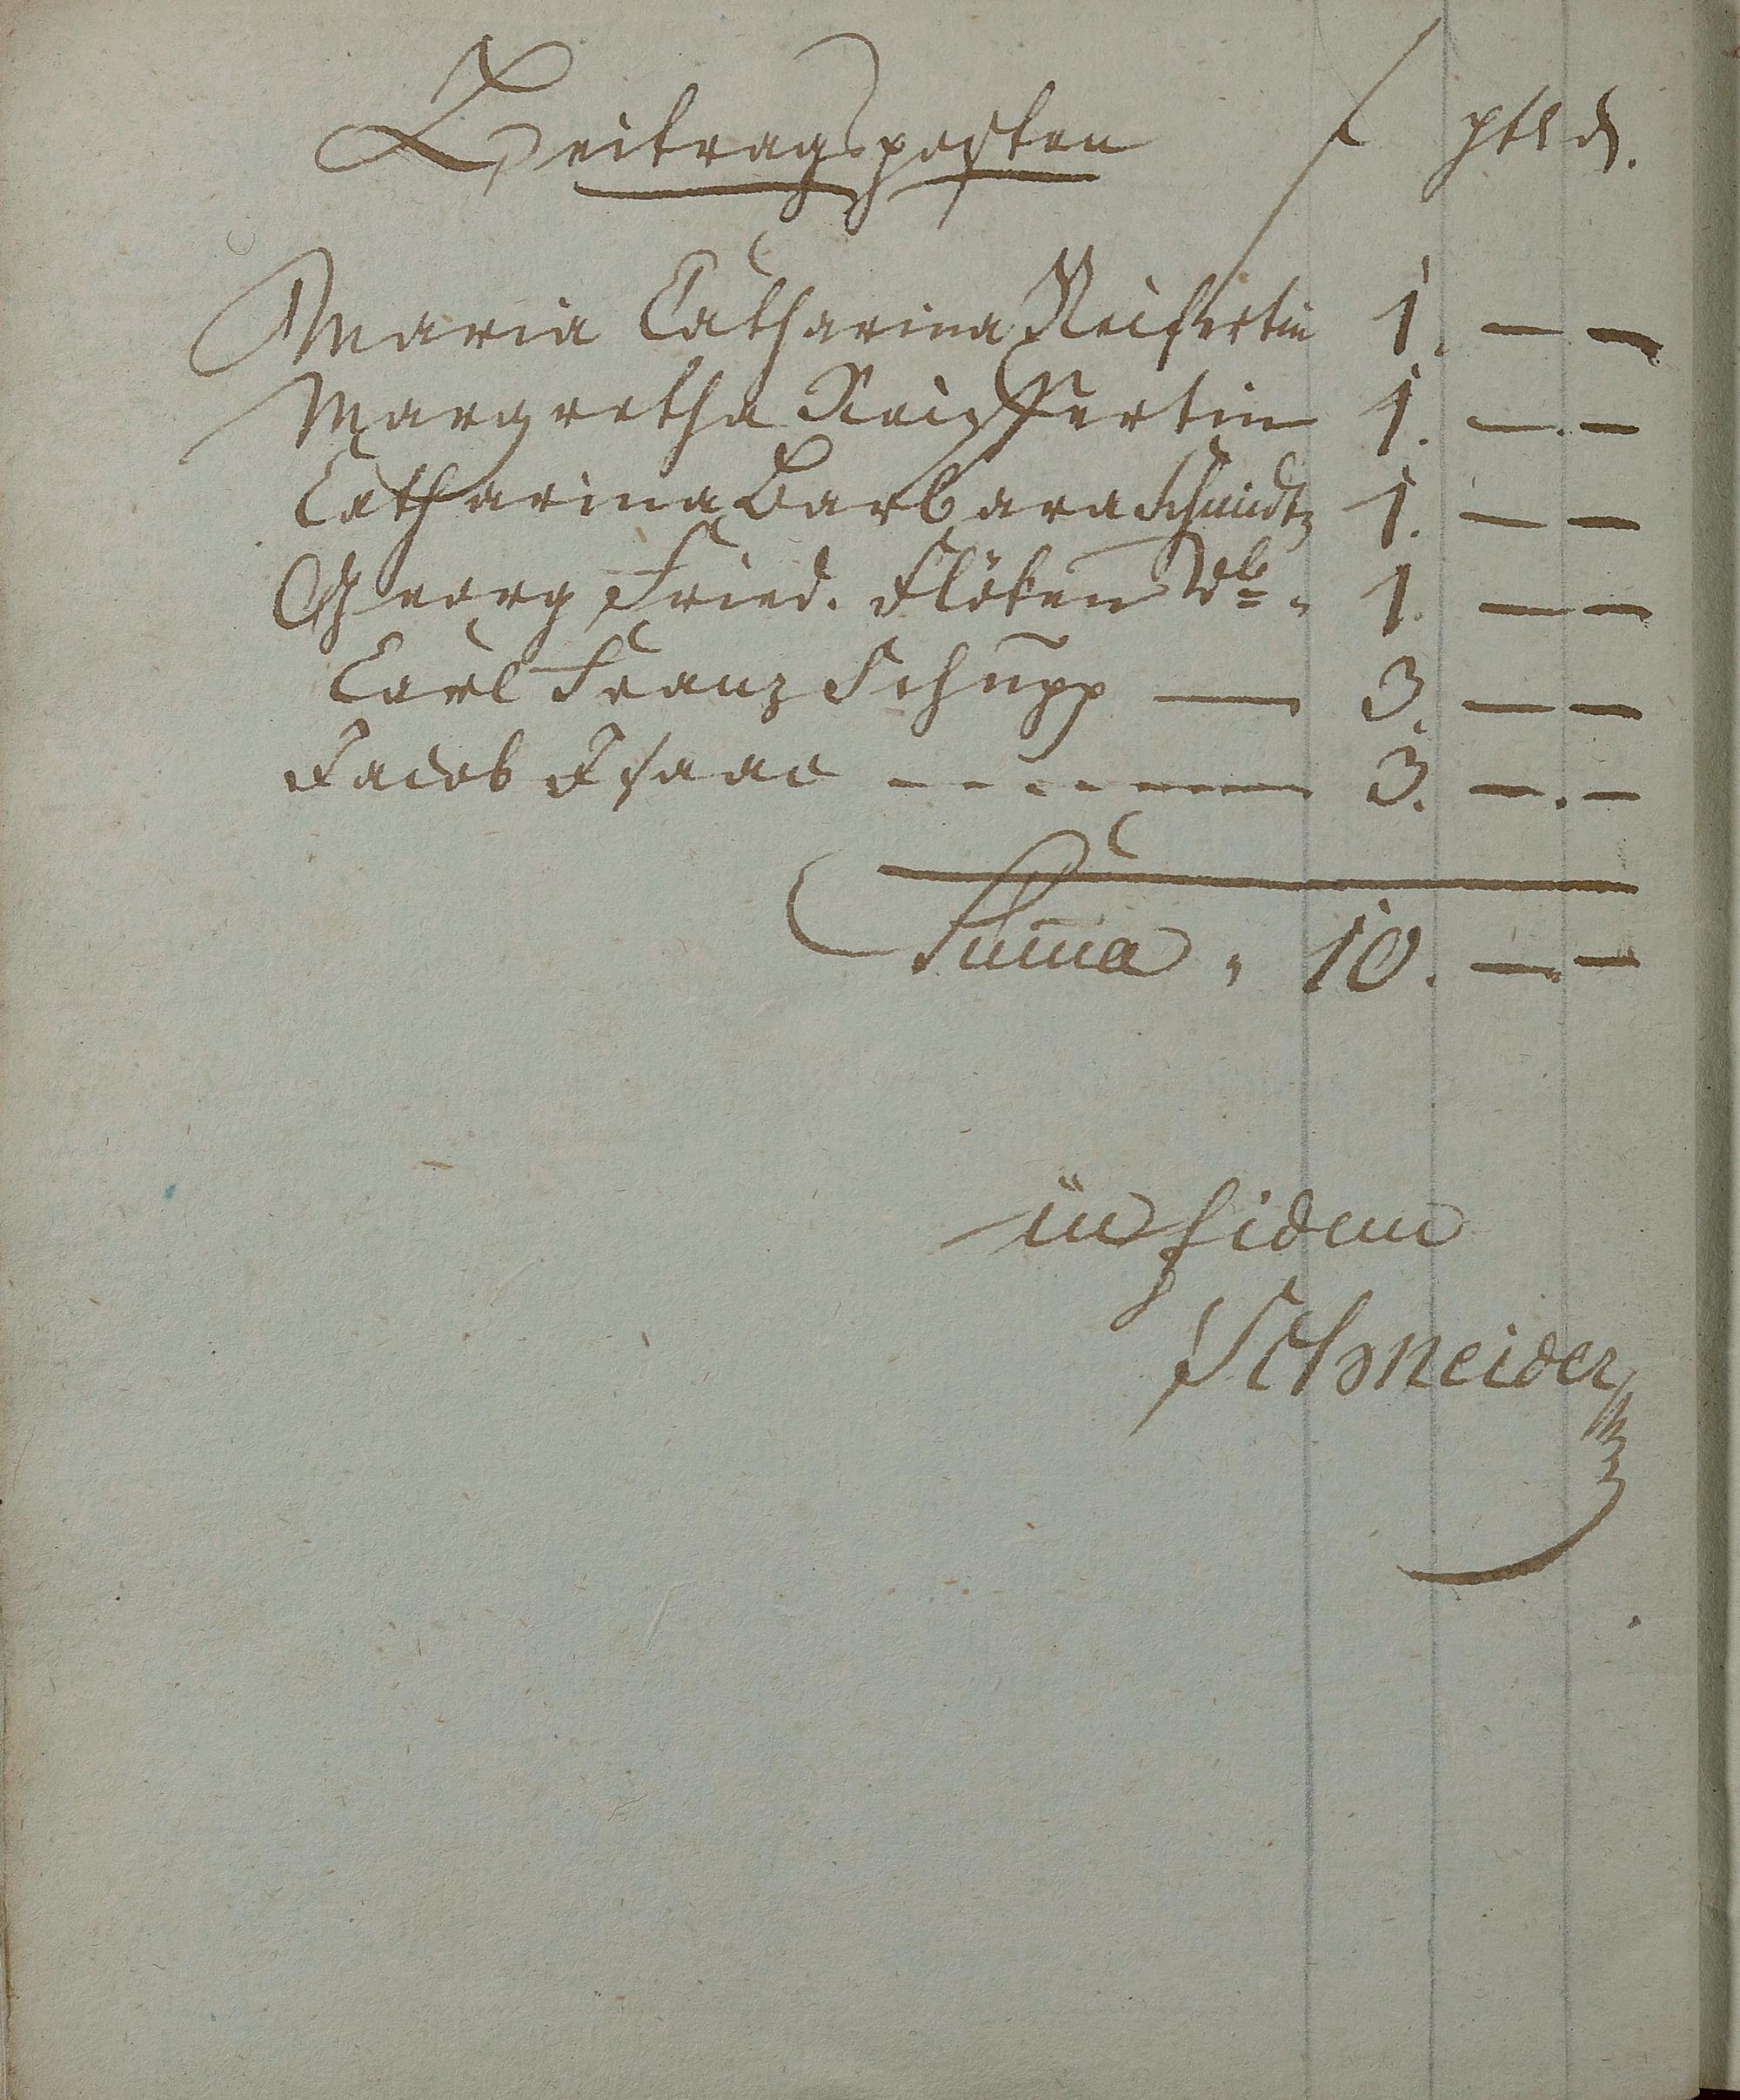 Beitragsposten f
Maria Catharina Reifertin 1. — —
Margretha Reiffertin 1. — . —
Catharina Barbara Schmidtz 1. — —
Georg Fried. Flöken 1. — —
Carl Franz Schupp — 3. — —
Jacob Isaac - - - - — 3. — . —
Suma „ 10. — . —
in fidem
Schneider